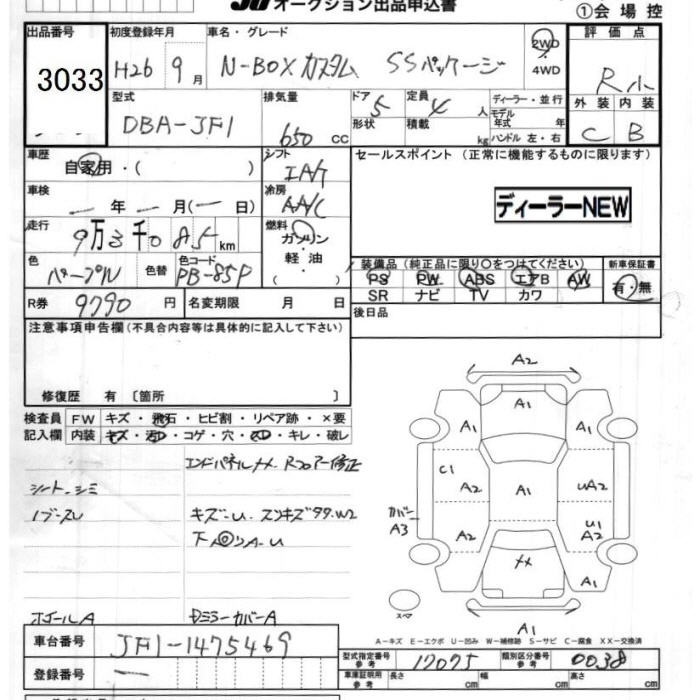 オークション出品申込書
①会場控
出品番号 初度登録年月 車名・グレード 評価点
3033 H26 9月 N-BOXカスタム SSパッケージ 2WD ・ 4WD R小
型式 排気量 ドア 定員 ディーラー・並行 外装 内装
DBA-JF1 650 cc 5 4人 モデル年式 年 C B
形状 積載 kg ハンドル 左・右
車歴 シフト セールスポイント (正常に機能するものに限ります)
自家用・( ) IAT
車検 冷房 ディーラーNEW
年 月(一日) AA/C
走行 燃料
9万3千085km ガソリン・軽油・( )
色 色替 色コード 装備品 (純正品に限り○をつけてください) 新車保証書
パープル PB-85P PS PW ABS エアB AW 有・無
SR ナビ TV カワ
R券 9790円 名変期限 月 日 後日品
注意事項申告欄 (不具合内容等は具体的に記入して下さい)
修復歴 有 〔箇所 〕
検査員 FW キズ・飛石・ヒビ割・リペア跡・×要
記入欄 内装 キズ・汚・コゲ・穴・・キレ・破レ
エンドパネルXX Rフロアー修正
シートシミ
キズ-U
ホイールA ドミラーカバーA
A2
A1
A1 A1
C1 A2 A1 UA2
カバーA3
A2 U1 A2
XX
A1
スペア
A1
A-キズ E-エクボ U-凹み W-補修跡 S-サビ C-腐食 XX-交換済
車台番号 JF1-1475469
型式指定番号 参考 17075 類別区分番号 参考 0038
登録番号 一
車庫証明用 参考 長さ cm 幅 cm 高さ cm